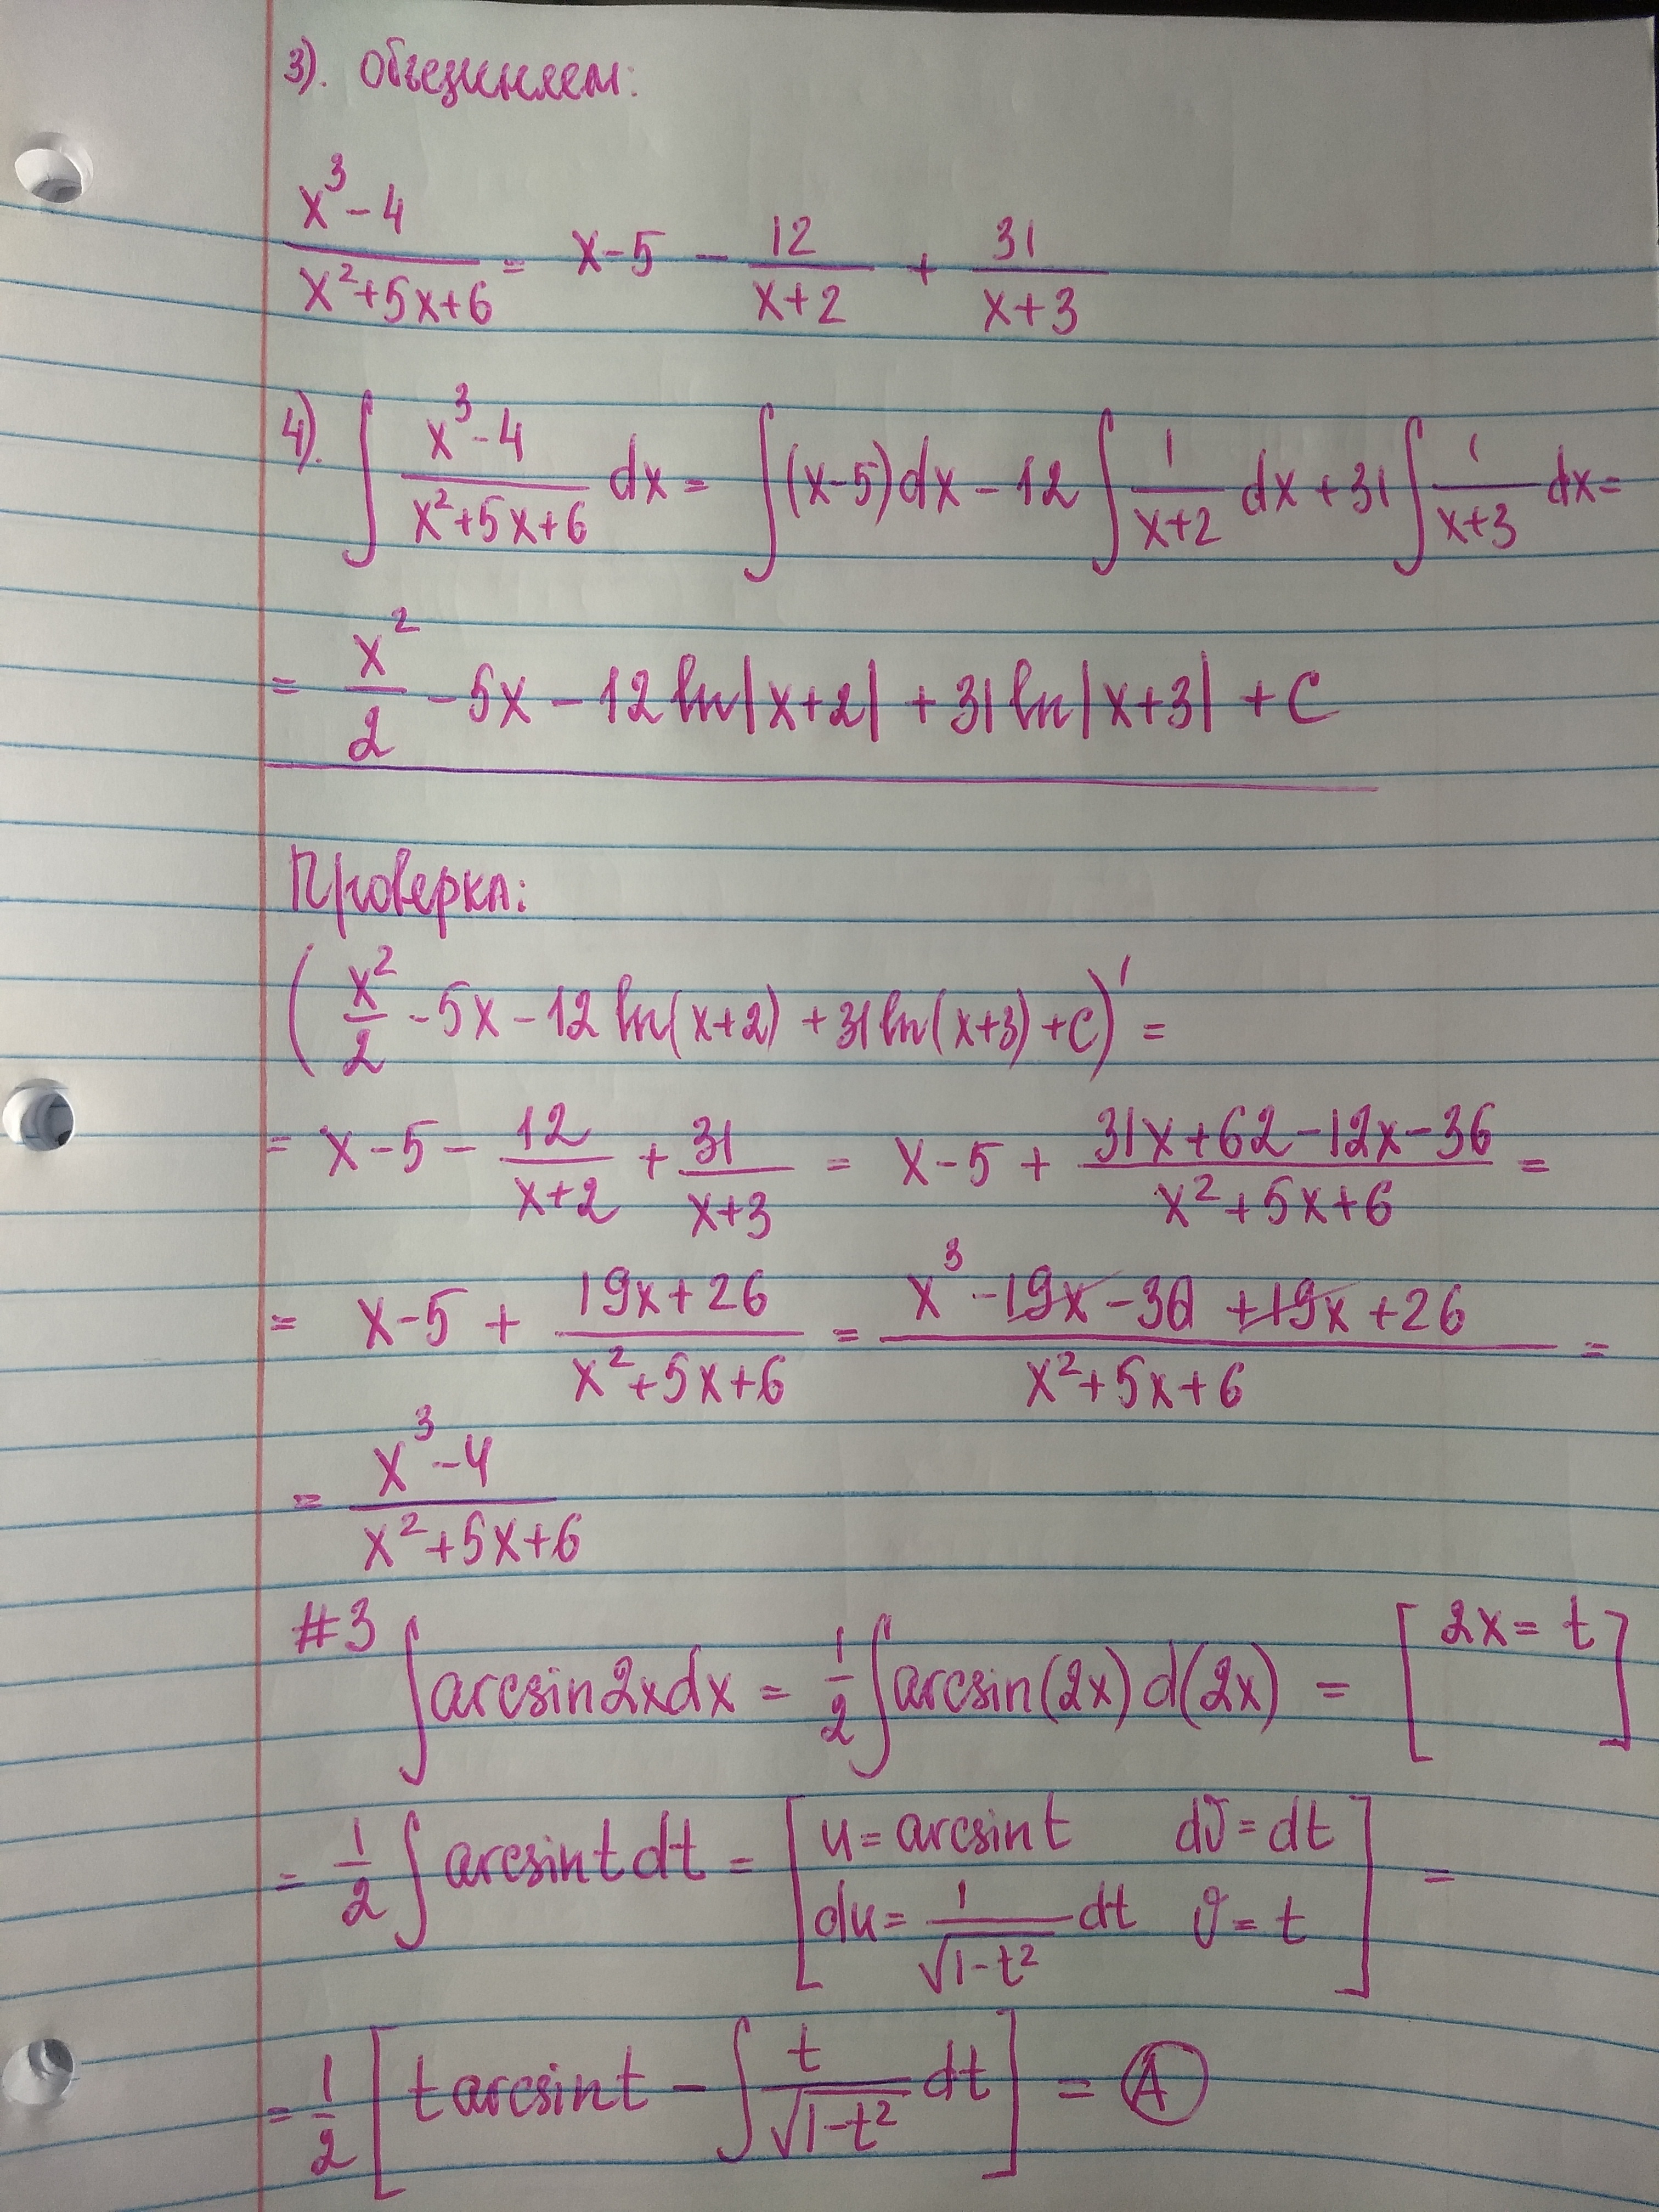 3). Объединяем:
x³-4/x²+5x+6 = x-5 - 12/x+2 + 31/x+3
4). ∫ x³-4/x²+5x+6 dx = ∫(x-5)dx - 12∫ 1/x+2 dx + 31∫ 1/x+3 dx =
= x²/2 - 5x - 12 ln|x+2| + 31 ln|x+3| + C
Проверка:
(x²/2 - 5x - 12 ln(x+2) + 31 ln(x+3) + C)' =
= x-5 - 12/x+2 + 31/x+3 = x-5 + 31x+62-12x-36/x²+5x+6 =
= x-5 + 19x+26/x²+5x+6 = x³-19x-30+19x+26/x²+5x+6 =
= x³-4/x²+5x+6
#3 ∫arcsin2xdx = 1/2 ∫arcsin(2x) d(2x) = [2x = t]
= 1/2 ∫ arcsint dt = [u = arcsint dv = dt
du = 1/√1-t² dt v = t] =
= 1/2 [t arcsint - ∫ t/√1-t² dt] = A